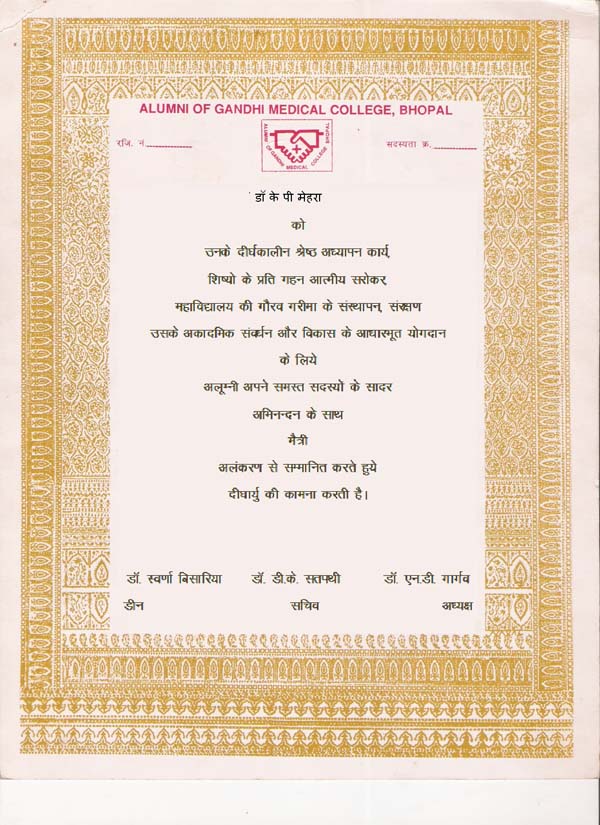 ALUMNI OF GANDHI MEDICAL COLLEGE, BHOPAL
रजि. नं.
ALUMNI OF GANDHI MEDICAL COLLEGE BHOPAL
सदस्यता क्र.
डॉ के पी मेहरा
को
उनके दीर्घकालीन श्रेष्ठ अध्यापन कार्य,
शिष्यो के प्रति गहन आत्मीय सरोकर,
महाविद्यालय की गौरव गरीमा के संस्थापन, संरक्षण
उसके अकादमिक संवर्धन और विकास के आधारभूत योगदान
के लिये
अलूम्नी अपने समस्त सदस्यों के सादर
अभिनन्दन के साथ
मैत्री
अलंकरण से सम्मानित करते हुये
दीघार्यु की कामना करती है।
डॉ. स्वर्णा बिसारिया डॉ. डी.के. सतपथी डॉ. एन.डी. गार्गव
डीन सचिव अध्यक्ष